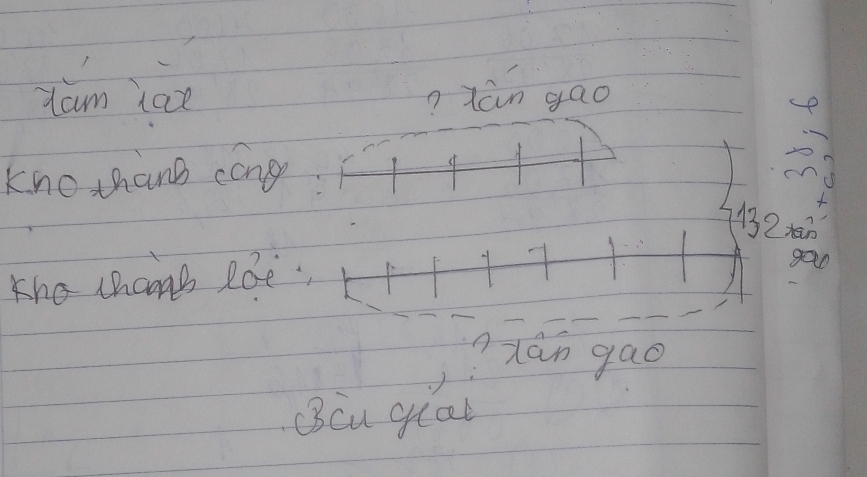 Tóm tắt
? tấn gạo
Kho thành công :
132 tấn
gạo
Kho thành lợi :
? tấn gạo
Bài giải